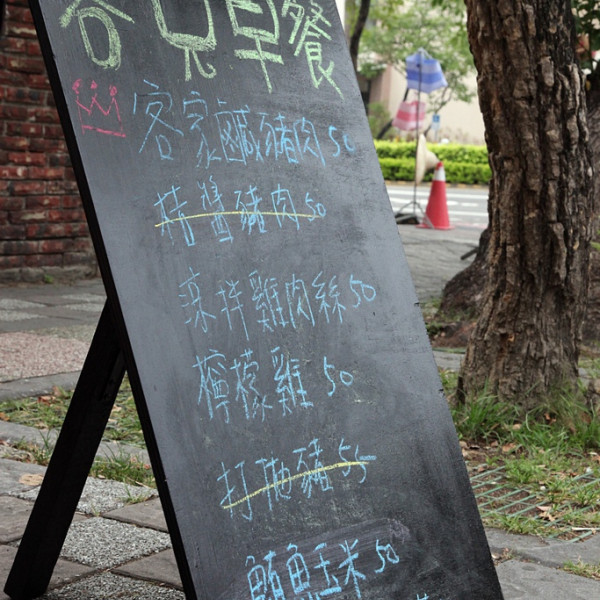 早餐
客家鹹豬肉 50
桔醬豬肉 50
涼拌雞肉絲 50
檸檬雞 50
打拋豬 55
鮪魚玉米 50